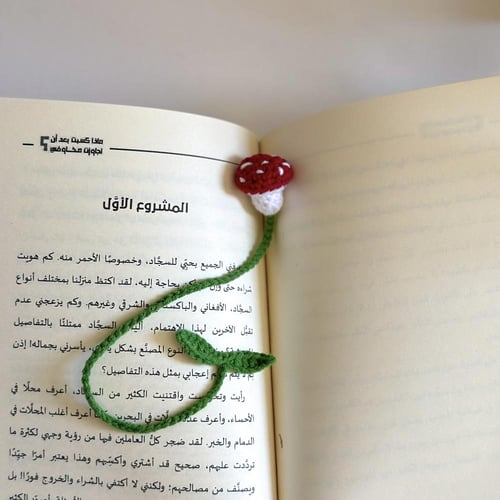 ماذا كسبت بعد أن
تجاوزت مخاوفي؟
المشروع الأوّل
في الجميع بحبّي للسجَّاد، وخصوصًا الأحمر منه. كم هويت
شراءه حتى وإن بحاجة إليه. لقد اكتظ منزلنا بمختلف أنواع
السجَّاد، الأفغاني والباكستاني والشرقي وغيرهم. وكم يزعجني عدم
تقبُّل الآخرين لهذا الاهتمام، السجَّاد ممتلئًا بالتفاصيل
النوع المصنَّع بشكل يأسرني بجماله! إذن
لم إعجابي بمثل هذه التفاصيل؟
رأيت واقتنيت الكثير من أعرف محلًا في
الأحساء، وأعرف عدة محلَّات في البحرين أعرف أغلب المحلَّات في
الدمام والخبر. لقد ضجر كلُّ العاملين فيها من رؤية وجهي لكثرة ما
تردَّدت عليهم، صحيح قد أشتري وأكسِبهم وهذا يعتبر أمرًا جيّدًا
ويصنَّف من مصالحهم؛ ولكنني لا أكتفي بالشراء والخروج فورًا! بل
الكثير